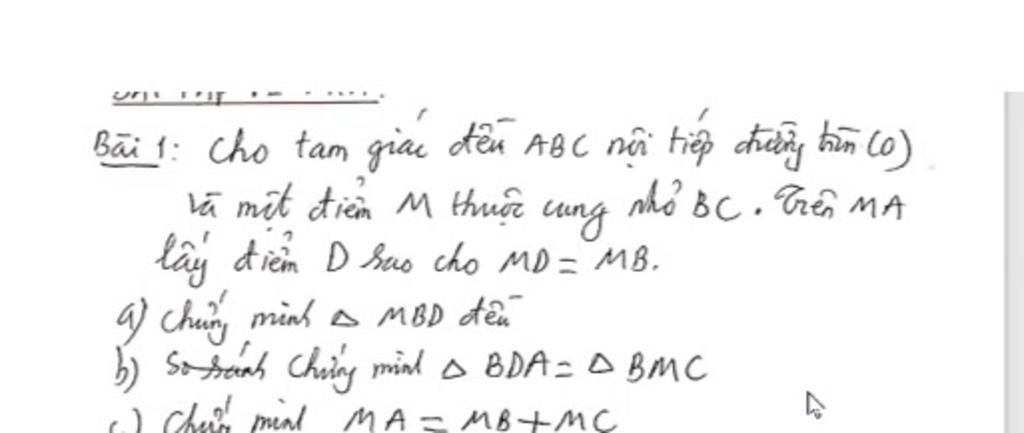 Bài 1: Cho tam giác đều ABC nội tiếp đường tròn (O)
và một điểm M thuộc cung nhỏ BC. Trên MA
lấy điểm D sao cho MD = MB.
a) Chứng minh △ MBD đều
b) So sánh Chứng minh △ BDA = △ BMC
c) Chứng minh MA = MB + MC